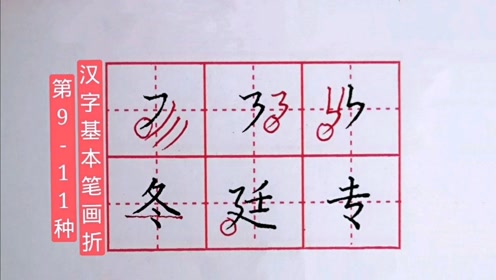 汉字基本笔画折
第9-11种
冬 廷 专